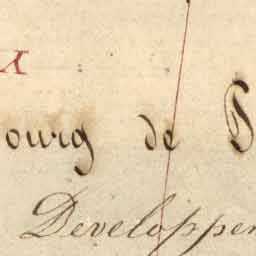 ourg de
Developpem